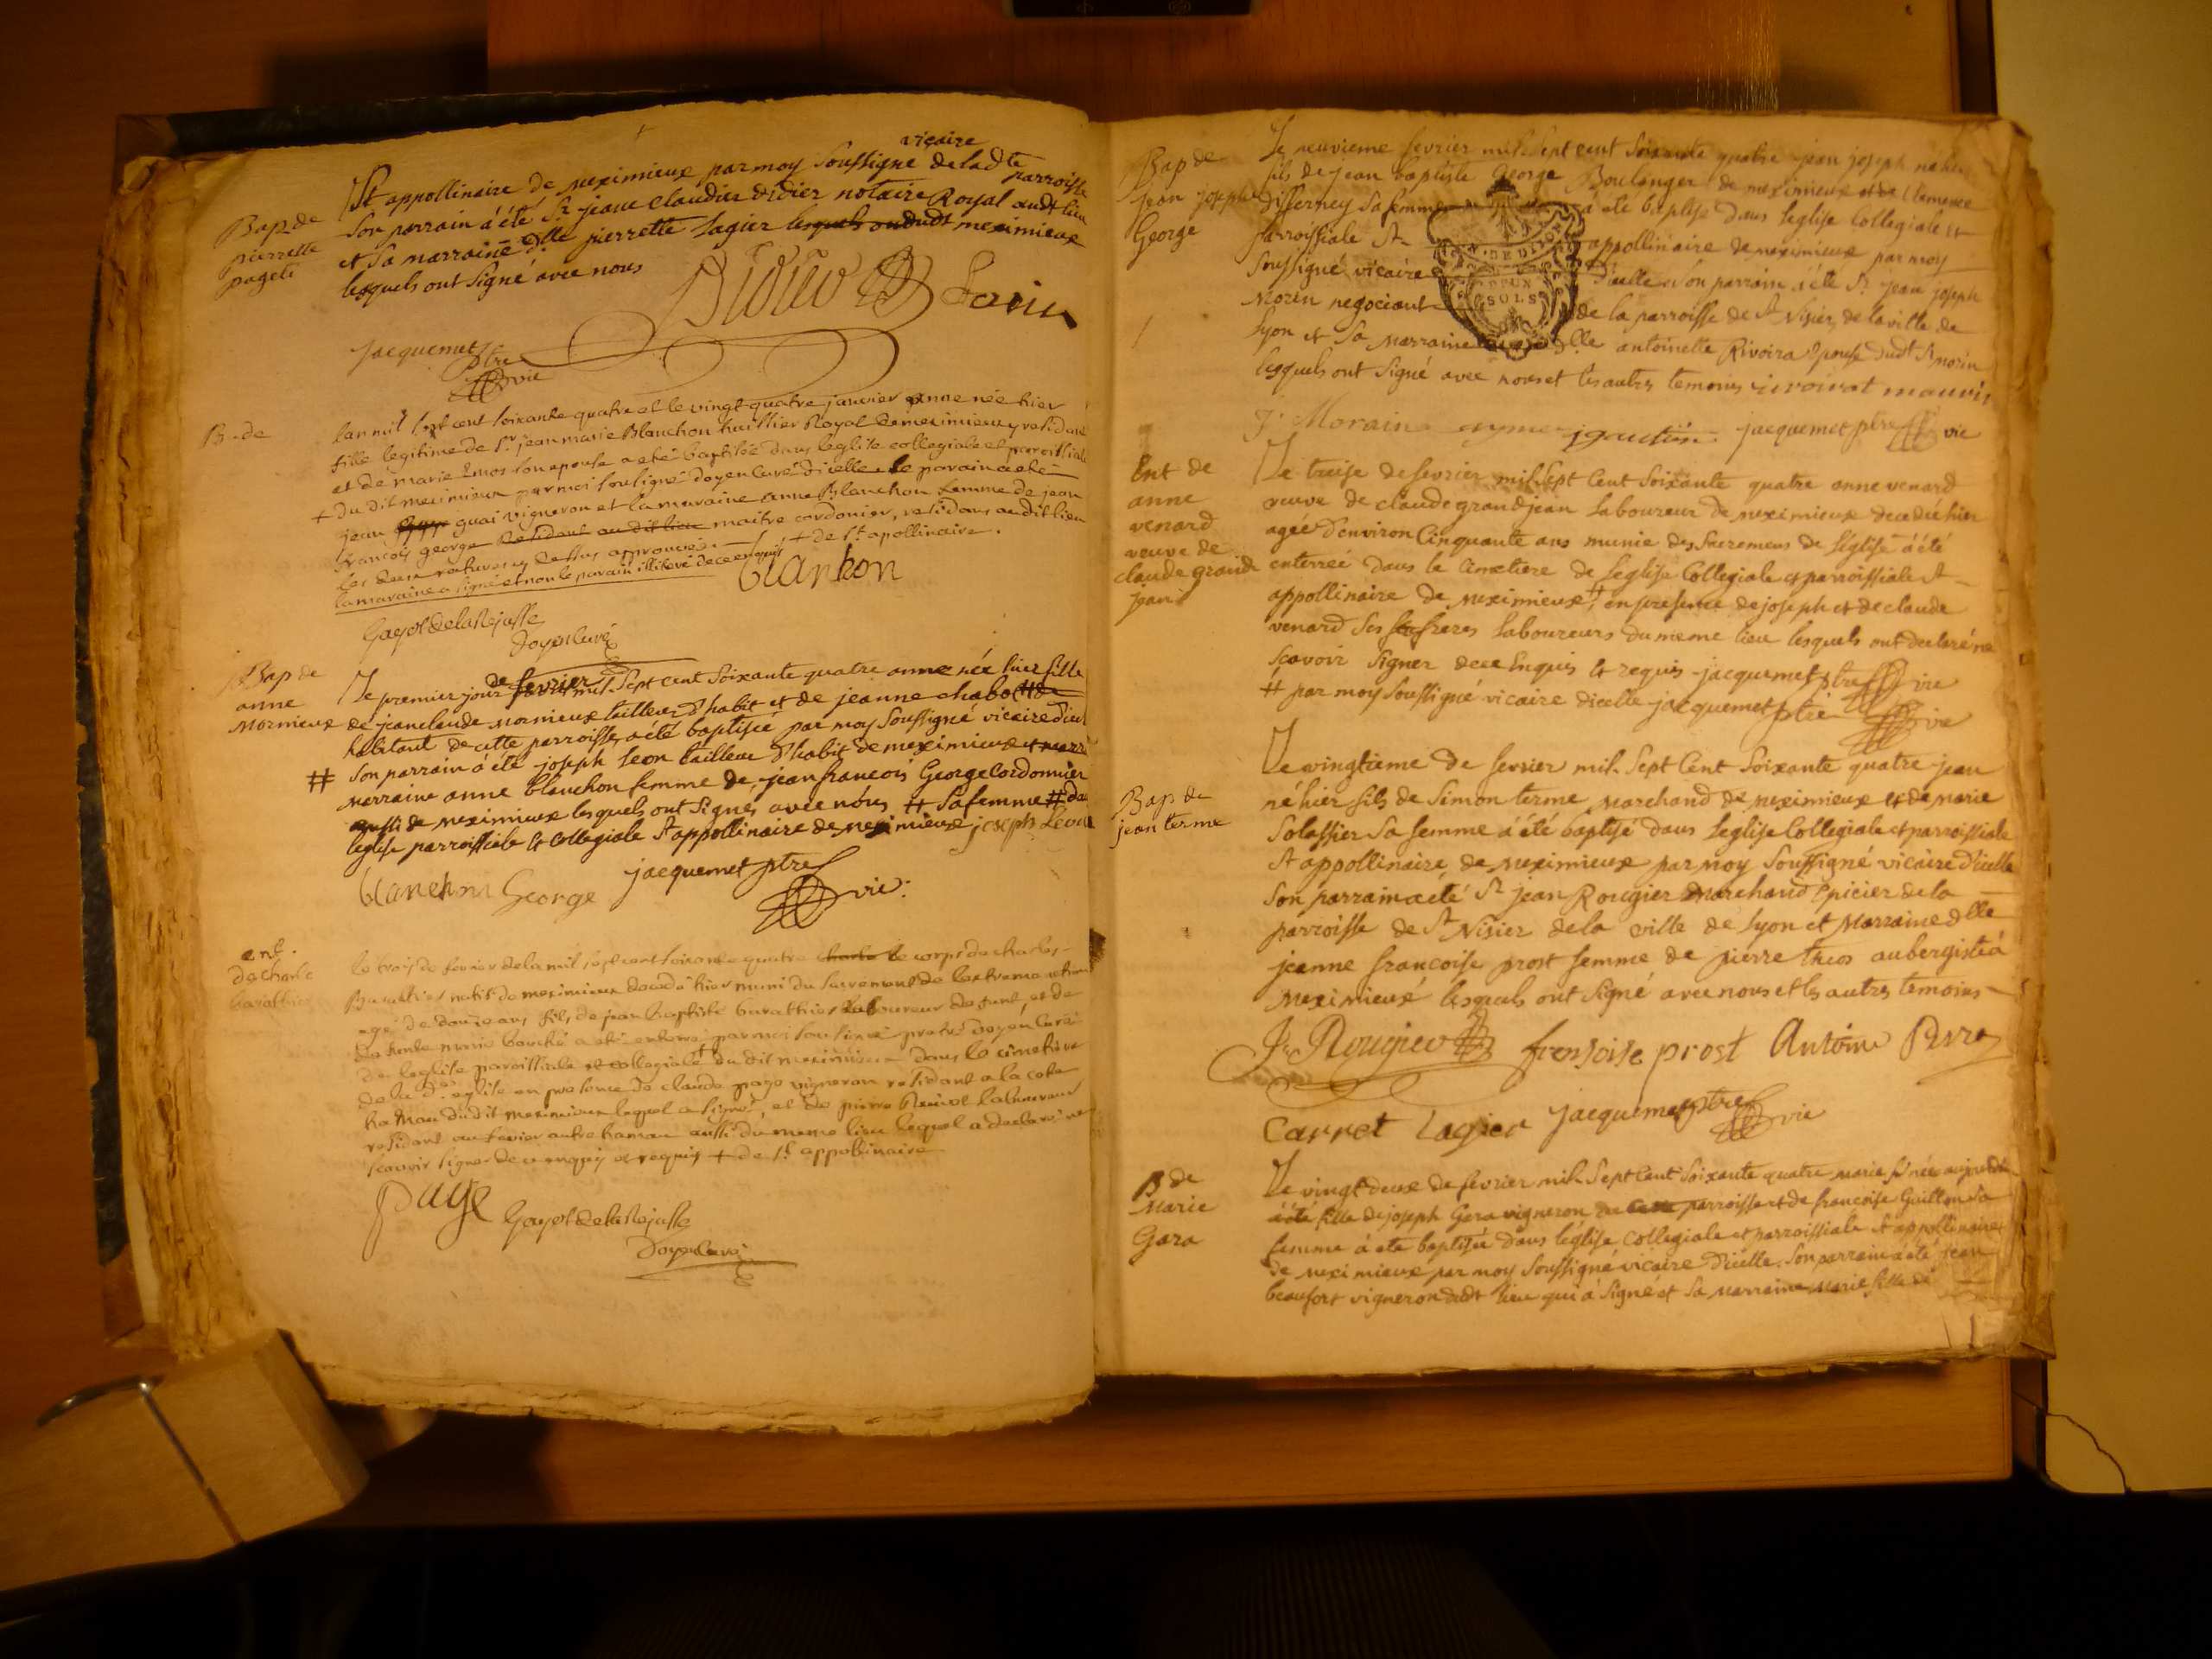 Bap de
pierrette
pagete
vicaire
St appollinaire de meximieux par moy soussigne de lad.te parroisse
son parrain à été Sr jean claudier didier notaire Royal audt lieu
et sa marraine dlle pierrette lagier lesquels ondudt meximieux
lesquels ont signé avec nous
jacquemet ptre
vic
B. de
lan mil sept cent soixante quatre et le vingt quatre janvier anne née hier
fille legitime de Sr jean marie Blanchon huissier Royal de meximieux y residant
et de marie son epouse a eté baptisée dans leglise collegiale et paroissiale
+ du dit meximieux par moi soussigné doyen curé d'icelle le parain a eté
jean guai vigneron et la maraine anne Blanchon femme de jean
françois george residant audit lieu maitre cordonier, residans audit lieu
les deux ratures cy dessus approuvées. + de St apollinaire.
la maraine a signé et non le parain illiteré de ce enquis
blanhon
Gayot de la Rejasse
Doyen Curé
Bap de
anne
mornieux
Le premier jour de fevrier mil sept cent soixante quatre anne née hier fille
de jean claude mornieux tailleur d'habit et de jeanne chabot
habitant de cette parroisse, a été baptisée par moy soussigné vicaire
# son parrain à été joseph leon tailleur d'habit de meximieux
marraine anne blanchon femme de jean francois George Cordonnier
aussi de meximieux lesquels ont signés avec nous # sa femme # da
leglise parroissiale et collegiale St appollinaire de meximieux joseph Leon
blanchon George jacquemet ptre
vic:
ent.
de charle
barathier
le trois de fevrier de la mil sept cent soixante quatre le corps de charles
natif de meximieux decedé hier muni du sacrement de lextreme
agé de douze ans fils de jean baptiste barathier laboureur
marie a eté enterré par moi soussigné pretre doyen Curé
de leglise paroissiale et collegiale + du dit meximieux dans le cimetiere
de la de eglise en presence de claude page vigneron residant a la cote
hamau du dit meximieux lequel a signé, et de pierre laboureur
residant autre hamau aussi du meme lieu lequel a declaré ne
scavoir signer de ce enquis et requis + de St appollinaire
page Gayot de la Rejasse
Doyen Curé
Bap de
jean joseph
George
Le neuvieme fevrier mil sept cent soixante quatre jean joseph né hier
fils de jean baptiste George Boulanger de meximieux et de Clemence
differney sa femme à eté baptisé dans leglise Collegiale et
parroissiale St appollinaire de meximieux par moy
soussigné vicaire d'icelle son parrain à été Sr jean joseph
Morin negociant de la parroisse de St Nisier de la ville de
Lyon et sa marraine dlle antoinette Rivoira epouse dudt Sr morin
lesquels ont signé avec nous et les autres temoins
DEUX
SOLS
Jh Morain jacquemet ptre vic
Ent de
anne
venard
veuve de
claude grand
jean
Le treise de fevrier mil sept cent soixante quatre anne venard
veuve de claude grandjean laboureur de meximieux decedée hier
agée d'environ cinquante ans munie des sacremens de l'église à été
enterrée dans le cimetiere de leglise Collegiale et parroissiale St
appollinaire de meximieux # en presence de joseph et de claude
venard ses freres laboureurs du meme lieu lesquels ont declaré ne
scavoir signer de ce enquis et requis jacquemet ptre vic
# par moy soussigné vicaire d'icelle jacquemet ptre
vic
Bap de
jean terme
Le vingtieme de fevrier mil sept cent soixante quatre jean
né hier fils de simon terme marchand de meximieux et de marie
Solassier sa femme à été baptisé dans leglise Collegiale et parroissiale
St appollinaire de meximieux par moy soussigné vicaire d'icelle
son parrain a eté Sr jean Rougier marchand epicier de la
parroisse de St Nisier de la ville de Lyon et marraine dlle
jeanne francoise prost femme de pierre aubergiste à
meximieux lesquels ont signé avec nous et les autres temoins
Jn Rougier fransoise prost Antoine
Carret Lagier jacquemet ptre
vic
B de
Marie
Gara
Le vingt deux de fevrier mil sept cent soixante quatre marie née aujourd'hui
fille de joseph Gara vigneron parroisse et de francoise Guillon sa
femme à eté baptisée dans léglise Collegiale et parroissiale St appollinaire
de meximieux par moy soussigné vicaire d'icelle. son parrain a eté jean
beaufort vigneron dudt lieu qui à signé et sa marraine Marie fille de